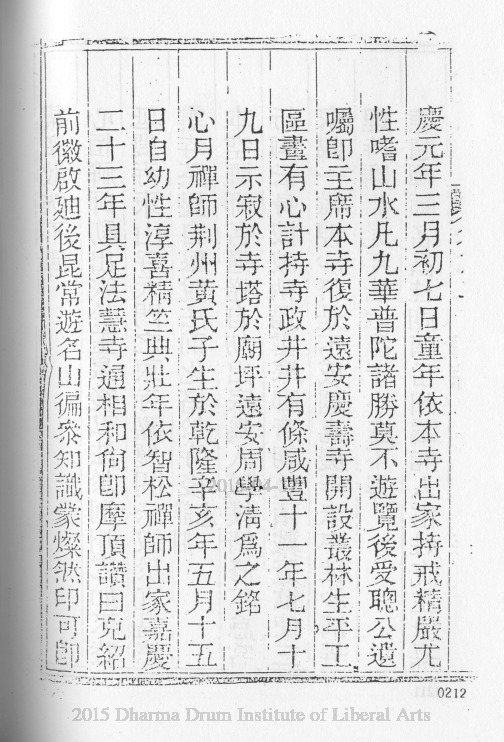 慶元年三月初七日童年依本寺出家持戒精嚴尤
性嗜山水凡九華普陀諸勝莫不遊覽後受聰公遺
囑卽主席本寺復於遠安慶壽寺開設叢林生平工
區畫有心計持寺政井井有條咸豐十一年七月十
九日示寂於寺塔於廟坪遠安周學淸爲之銘
心月禪師荆州黄氏子生於乾隆辛亥年五月十五
日自幼性淳喜精竺典壯年依智松禪師出家嘉慶
二十三年具足法慧寺通相和尙卽摩頂讚曰克紹
前徽啟廸後昆常遊名山徧叅知識蒙燦然印可卽
0212
2015 Dharma Drum Institute of Liberal Arts